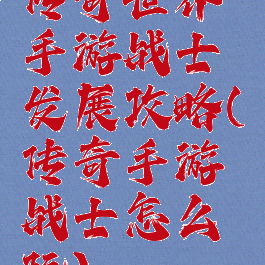 传奇世界
手游战士
发展攻略(
传奇手游
战士怎么